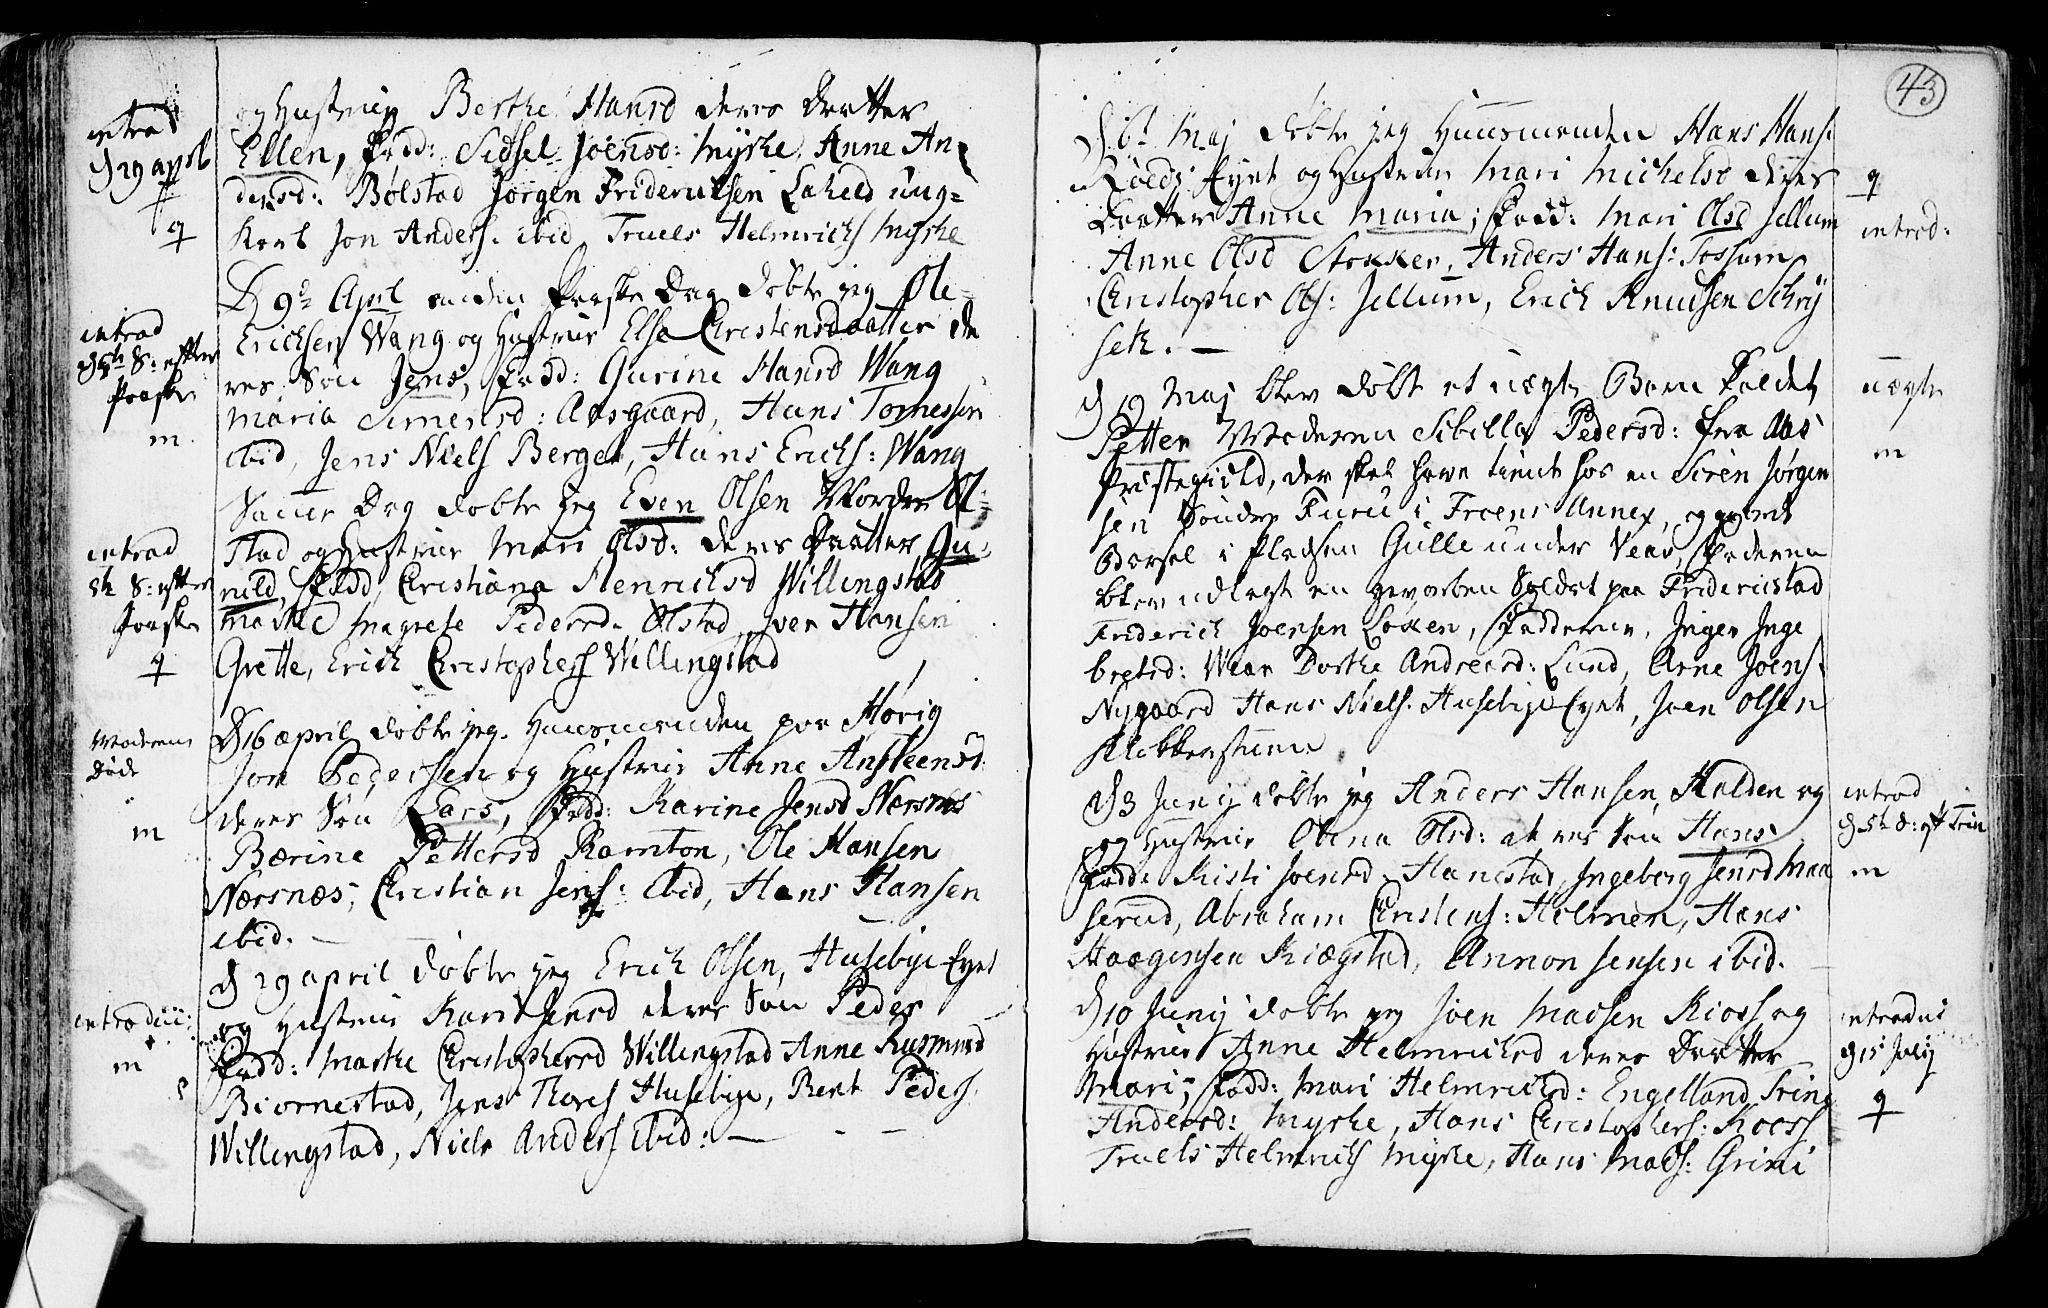 introd
d 29 april
q
og Hustrue Berthe Hansd deres Daatter
Ellen, Fadd: Sidsel Joensd: Myrhe, Anne An-
dersd: Bølstad Jørgen Friderichsen Laheld ung-
Karl Jon Anders: ibid Truels Helmrichs Myrhe
introd
d 5te S: efter
Paaske
m.
D 9de April anden Paaske Dag døbte jeg Ole
Erichsen Wang og Hustrue Else Christensdaatter de
res Søn Jens, Fadd: Gurine Hansd Wang
Maria Simensd: Aasgaard, Hans Tomessen
ibid, Jens Niels Berger, Hans Erichs: Wang
introd
5te S: efter
Paaske
q
Samme Dag døbte jeg Even Olsen Nordre Øl-
stad og Hustrue Mari Olsd: deres Daatter Gu-
nild, Fadd Christiana Henrichsd Willingstad
Marthe Magrete Pedersd. Ølstad, Iver Hansen
Grette, Erich Christophers Willingstad
Moderen
døde
m
D 16 april døbte jeg Huusmanden paa Hørig
Jon Pedersen og Hustrue Anne Ansteensd:
deres Søn Lars, Fadd: Karine Jensd Nærsnes
Bærine Pettersd Ramton, Ole Hansen
Nærsnæs, Christian Jens: ibid, Hans Hansen
ibid. —
introduc:
m
d 29 april døbte jeg Erich Olsen, Husebye Eyet
og Hustrue Kari Jensd deres Søn Peder
Fadd: Marthe Christophersd Willingstad Anne Rasmusd
Biørnestad, Jens Thores Husebye, Bent Peders
Willingstad, Niels Anders ibid: —
43
d. 6t Maj døbte jeg Huusmanden Hans Hans:
Eyet og Hustrue Mari Michelsd deres
Daatter Anne Maria; Fadd: Mari Olsd Jellum
Anne Olsd Stokker, Anders Hans: Tossum
Christopher Ols: Jellum, Erich Knudsen Schrÿ
seth. —
q
introd:
d 19 Maj blev døbt et uægte Barn kaldet
Petter Moderen Sibilla Pedersd: fra Aas
Præstegield, der skal have tient hos en Siren Jørgen
sen Søndre Furu i Froens Annex, og gjort
Barsel i Pladsen Gulle under Vear, Faderen
blev udlagt en hvorben Soldat paa Fridericstad
Friderich Joensen Løken, Fadderne, Inger Inge
bretsd: Wear Dorthe Andreasd: Lund, Arne Joens:
Nygaard Hans Niels: Husebye Eyet, Joen Olsen
Klokkerstuen
uægte
m
d 3 Junij døbte jeg Anders Hansen, Halden og
og Hustrue Olena Olsd: deres Søn Hans
Fadd: Kisti Joensd. Hanestad, Ingeborg Jensd Maa
serud, Abraham Christens: Holmen, Hans
Haagensen Kiægstad, Annon Jensen ibid.
introd
d 5te S: eft Trin
m
d 10 Junij døbte jeg Joen Madsen Kioss og
Hustrue Anne Helmrichsd deres Daatter
Mari; Fadd: Mari Helmrichsd: Engelland, Trine
Andersd: Myrhe, Hans Christophers: Koess
Truels Helmrichs Myrhe, Hans Mads: Grini
introduc
d 15 Julij
q